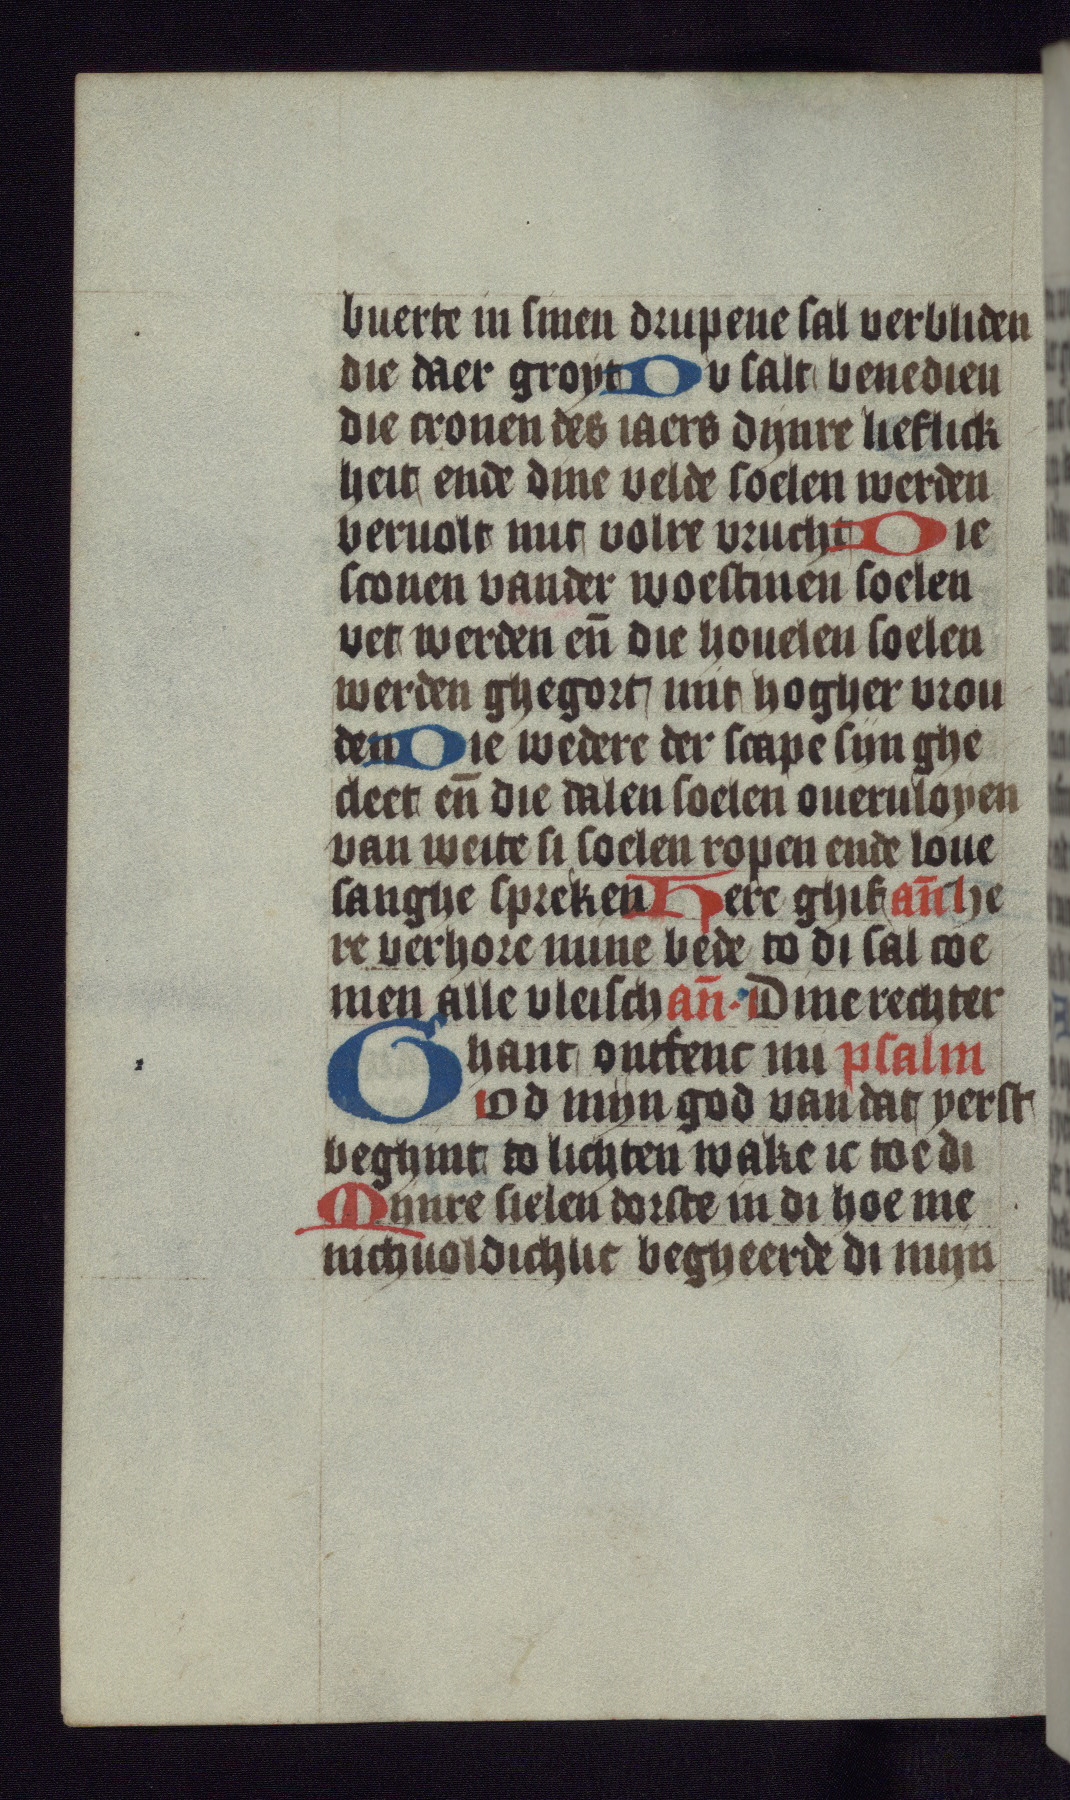 buerte in sinen drupene sal verbliden
die daer groyt Du salt benedien
die cronen des iaers dijnre lieflick
heit ende dine velde soelen werden
veruolt mit volre vrucht Die
sconen vander woestinen soelen
vet werden en̄ die houelen soelen
werden ghegort mit hogher vrou
den Die wedere der scape sijn ghe
cleet en̄ die dalen soelen oueruloyen
van weite si soelen ropen ende loue
sanghe spreken Here ghif an̄ he
re verhore mine bede to di sal coe
men alle vleisch an̄. Dine rechter
hant ontfenc mi psalm
God mijn god van dat yerst
beghint to lichten wake ic toe di
Mijnre sielen dorste in di hoe me
nichuoldichlic begheerde di mijn